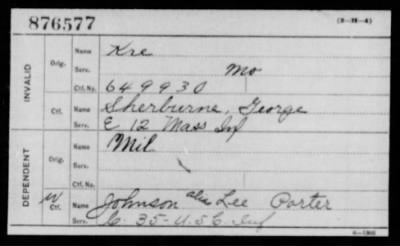 876577
(3-M-4)
INVALID
Orig.
Name Kre
Serv. Mo
Ctf. No. 649930
Ctf.
Name Sherburne, George
Serv. E 12 Mass Inf
DEPENDENT
Orig.
Name Mil
Serv.
Ctf. No.
W
Ctf.
Name Johnson alias Lee Porter
Serv. C. 35-U.S.C Inf